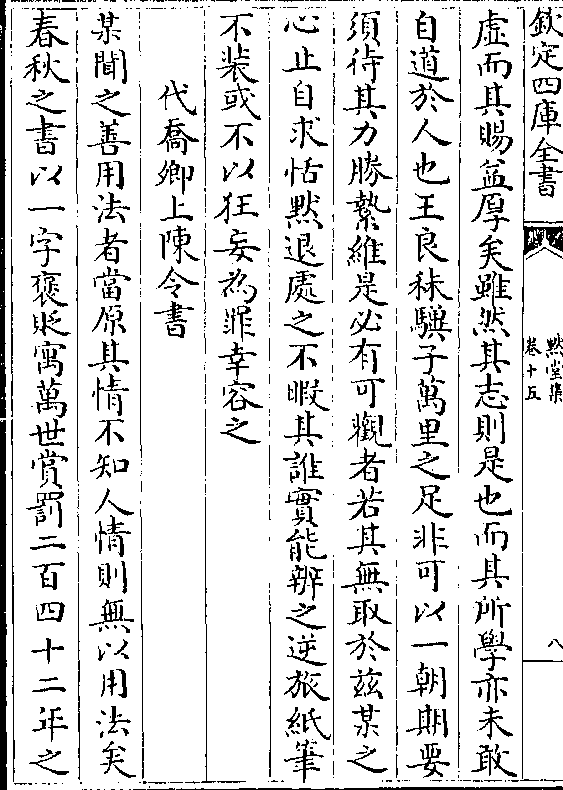 欽定四庫全書
默堂集
卷十五
八
虛而其賜益厚矣雖然其志則是也而其所學亦未敢
自道於人也王良秣驥子萬里之足非可以一朝期要
須待其力勝縶維是必有可觀者若其無取於兹某之
心止自求恬默退處之不暇其誰實能辨之逆旅紙筆
不装或不以狂妄為罪幸容之
代喬卿上陳令書
某聞之善用法者當原其情不知人情則無以用法矣
春秋之書以一字褒貶寓萬世賞罰二百四十二年之